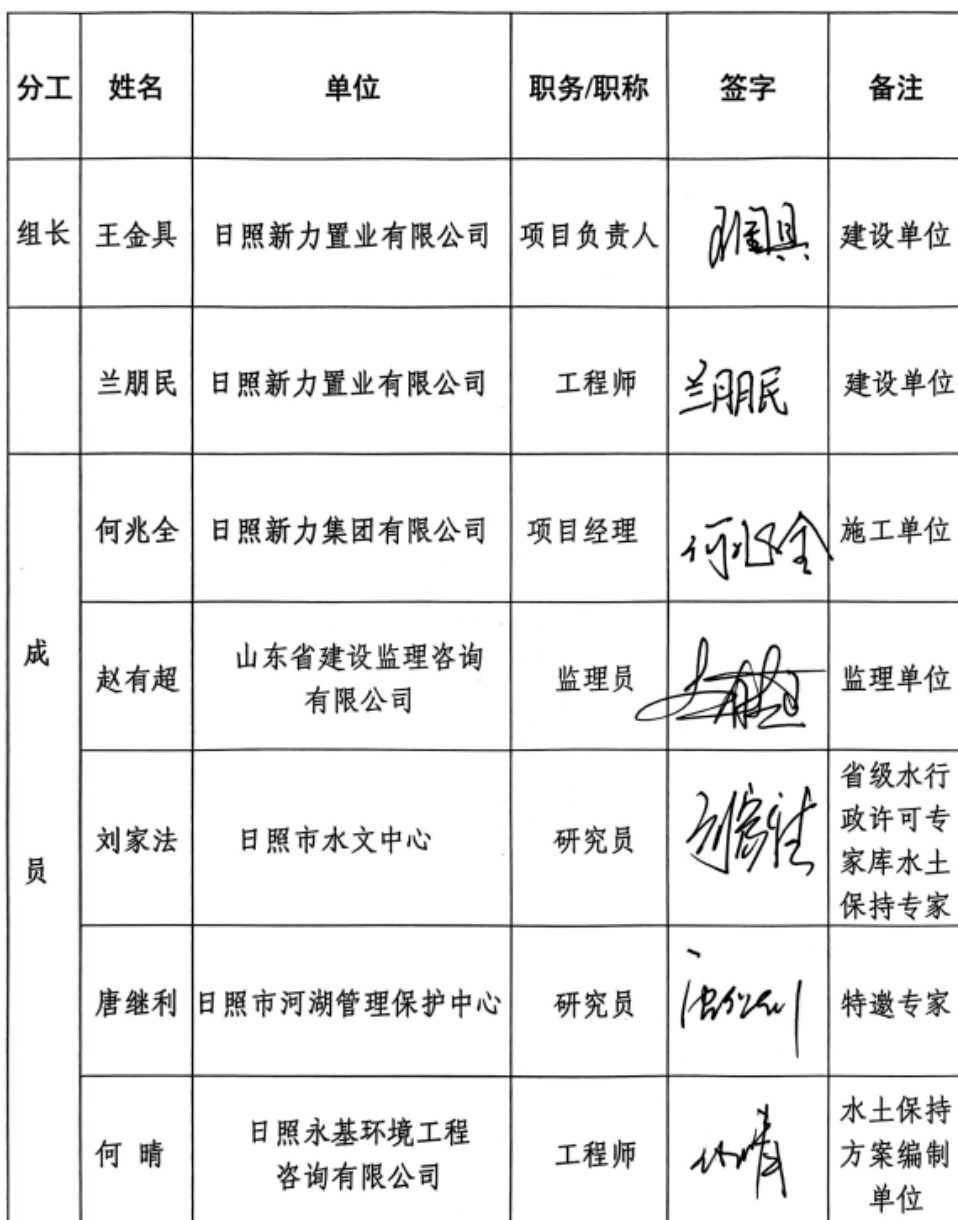 分工 姓名 单位 职务/职称 签字 备注
组长 王金具 日照新力置业有限公司 项目负责人 建设单位
兰朋民 日照新力置业有限公司 工程师 兰朋民 建设单位
何兆全 日照新力集团有限公司 项目经理 何兆全 施工单位
成
员
赵有超 山东省建设监理咨询
有限公司 监理员 监理单位
刘家法 日照市水文中心 研究员 省级水行
政许可专
家库水土
保持专家
唐继利 日照市河湖管理保护中心 研究员 特邀专家
何 晴 日照永基环境工程
咨询有限公司 工程师 水土保持
方案编制
单位